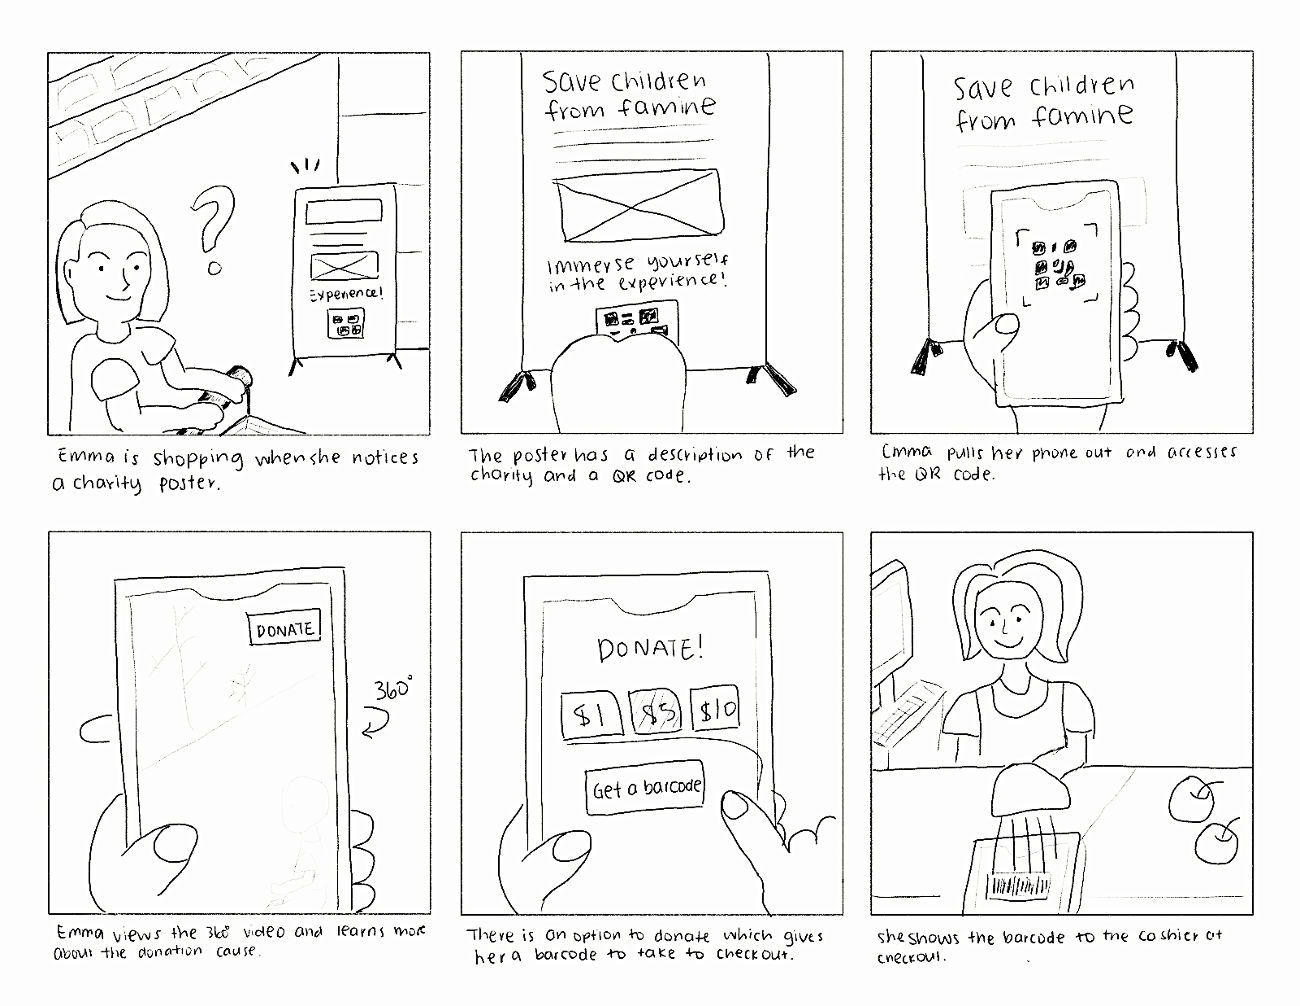 Experience!
Emma is shopping when she notices
a charity poster.
Save children
from famine
Immerse yourself
in the experience!
The poster has a description of the
charity and a QR code.
Save children
from famine
Emma pulls her phone out and accesses
the QR code.
DONATE
360°
Emma views the 360° video and learns more
about the donation cause.
DONATE!
$1 $5 $10
Get a barcode
There is an option to donate which gives
her a barcode to take to checkout.
she shows the barcode to the cashier at
checkout.